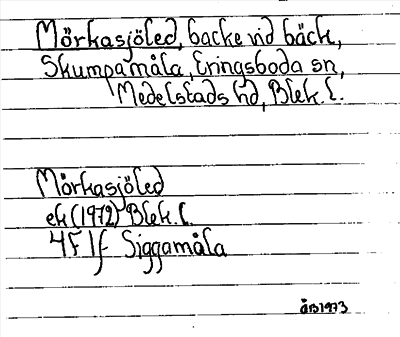 Mörkasjöled, backe vid bäck,
Skumpamåla, Eringsboda sn,
Medelstads hd, Blek. l.
Mörkasjöled
ek (1972) Blek. l.
4F 1f Siggamåla
ÅB 1973